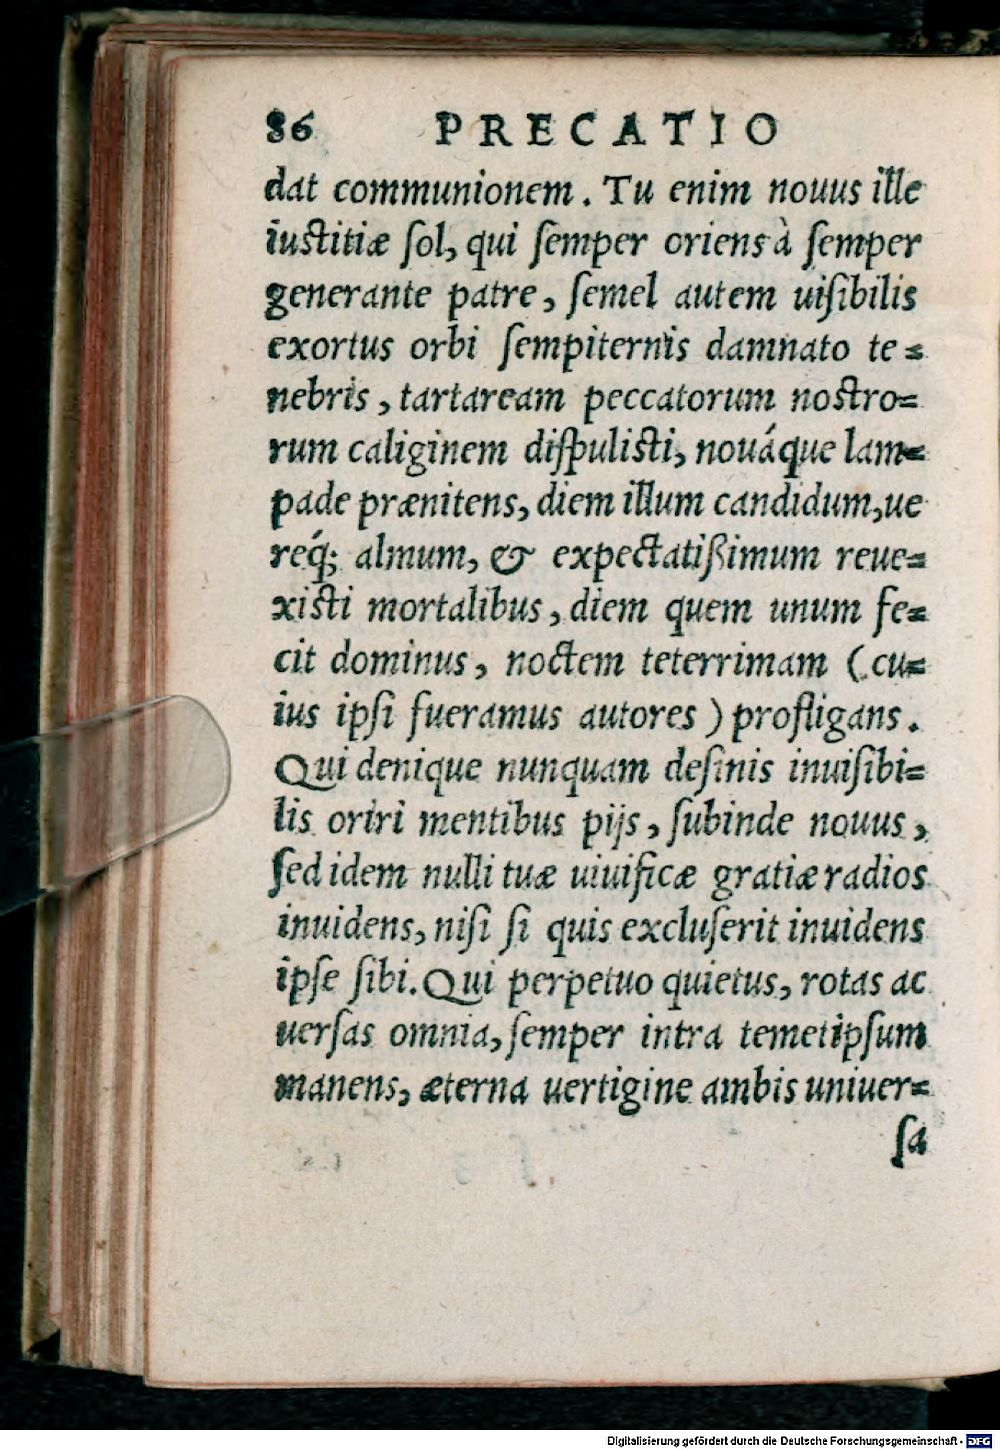 86 PRECATIO
dat communionem. Tu enim nouus ille
iustitiæ ſol, qui ſemper oriens à ſemper
generante patre, ſemel autem uiſibilis
exortus orbi ſempiternis damnato te=
nebris, tartaream peccatorum nostro=
rum caliginem diſpulisti, nouáque lam=
pade prænitens, diem illum candidum, ue
req́; almum, & expectatißimum reue=
xisti mortalibus, diem quem unum fe=
cit dominus, noctem teterrimam (cu=
ius ipſi fueramus autores) profligans.
Qui denique nunquam deſinis inuiſibi=
lis oriri mentibus pijs, ſubinde nouus,
ſed idem nulli tuæ uiuificæ gratiæ radios
inuidens, niſi ſi quis excluſerit inuidens
ipſe ſibi. Qui perpetuo quietus, rotas ac
uerſas omnia, ſemper intra temetipſum
manens, æterna uertigine ambis uniuer=
ſa
Digitalisierung gefördert durch die Deutsche Forschungsgemeinschaft - DFG